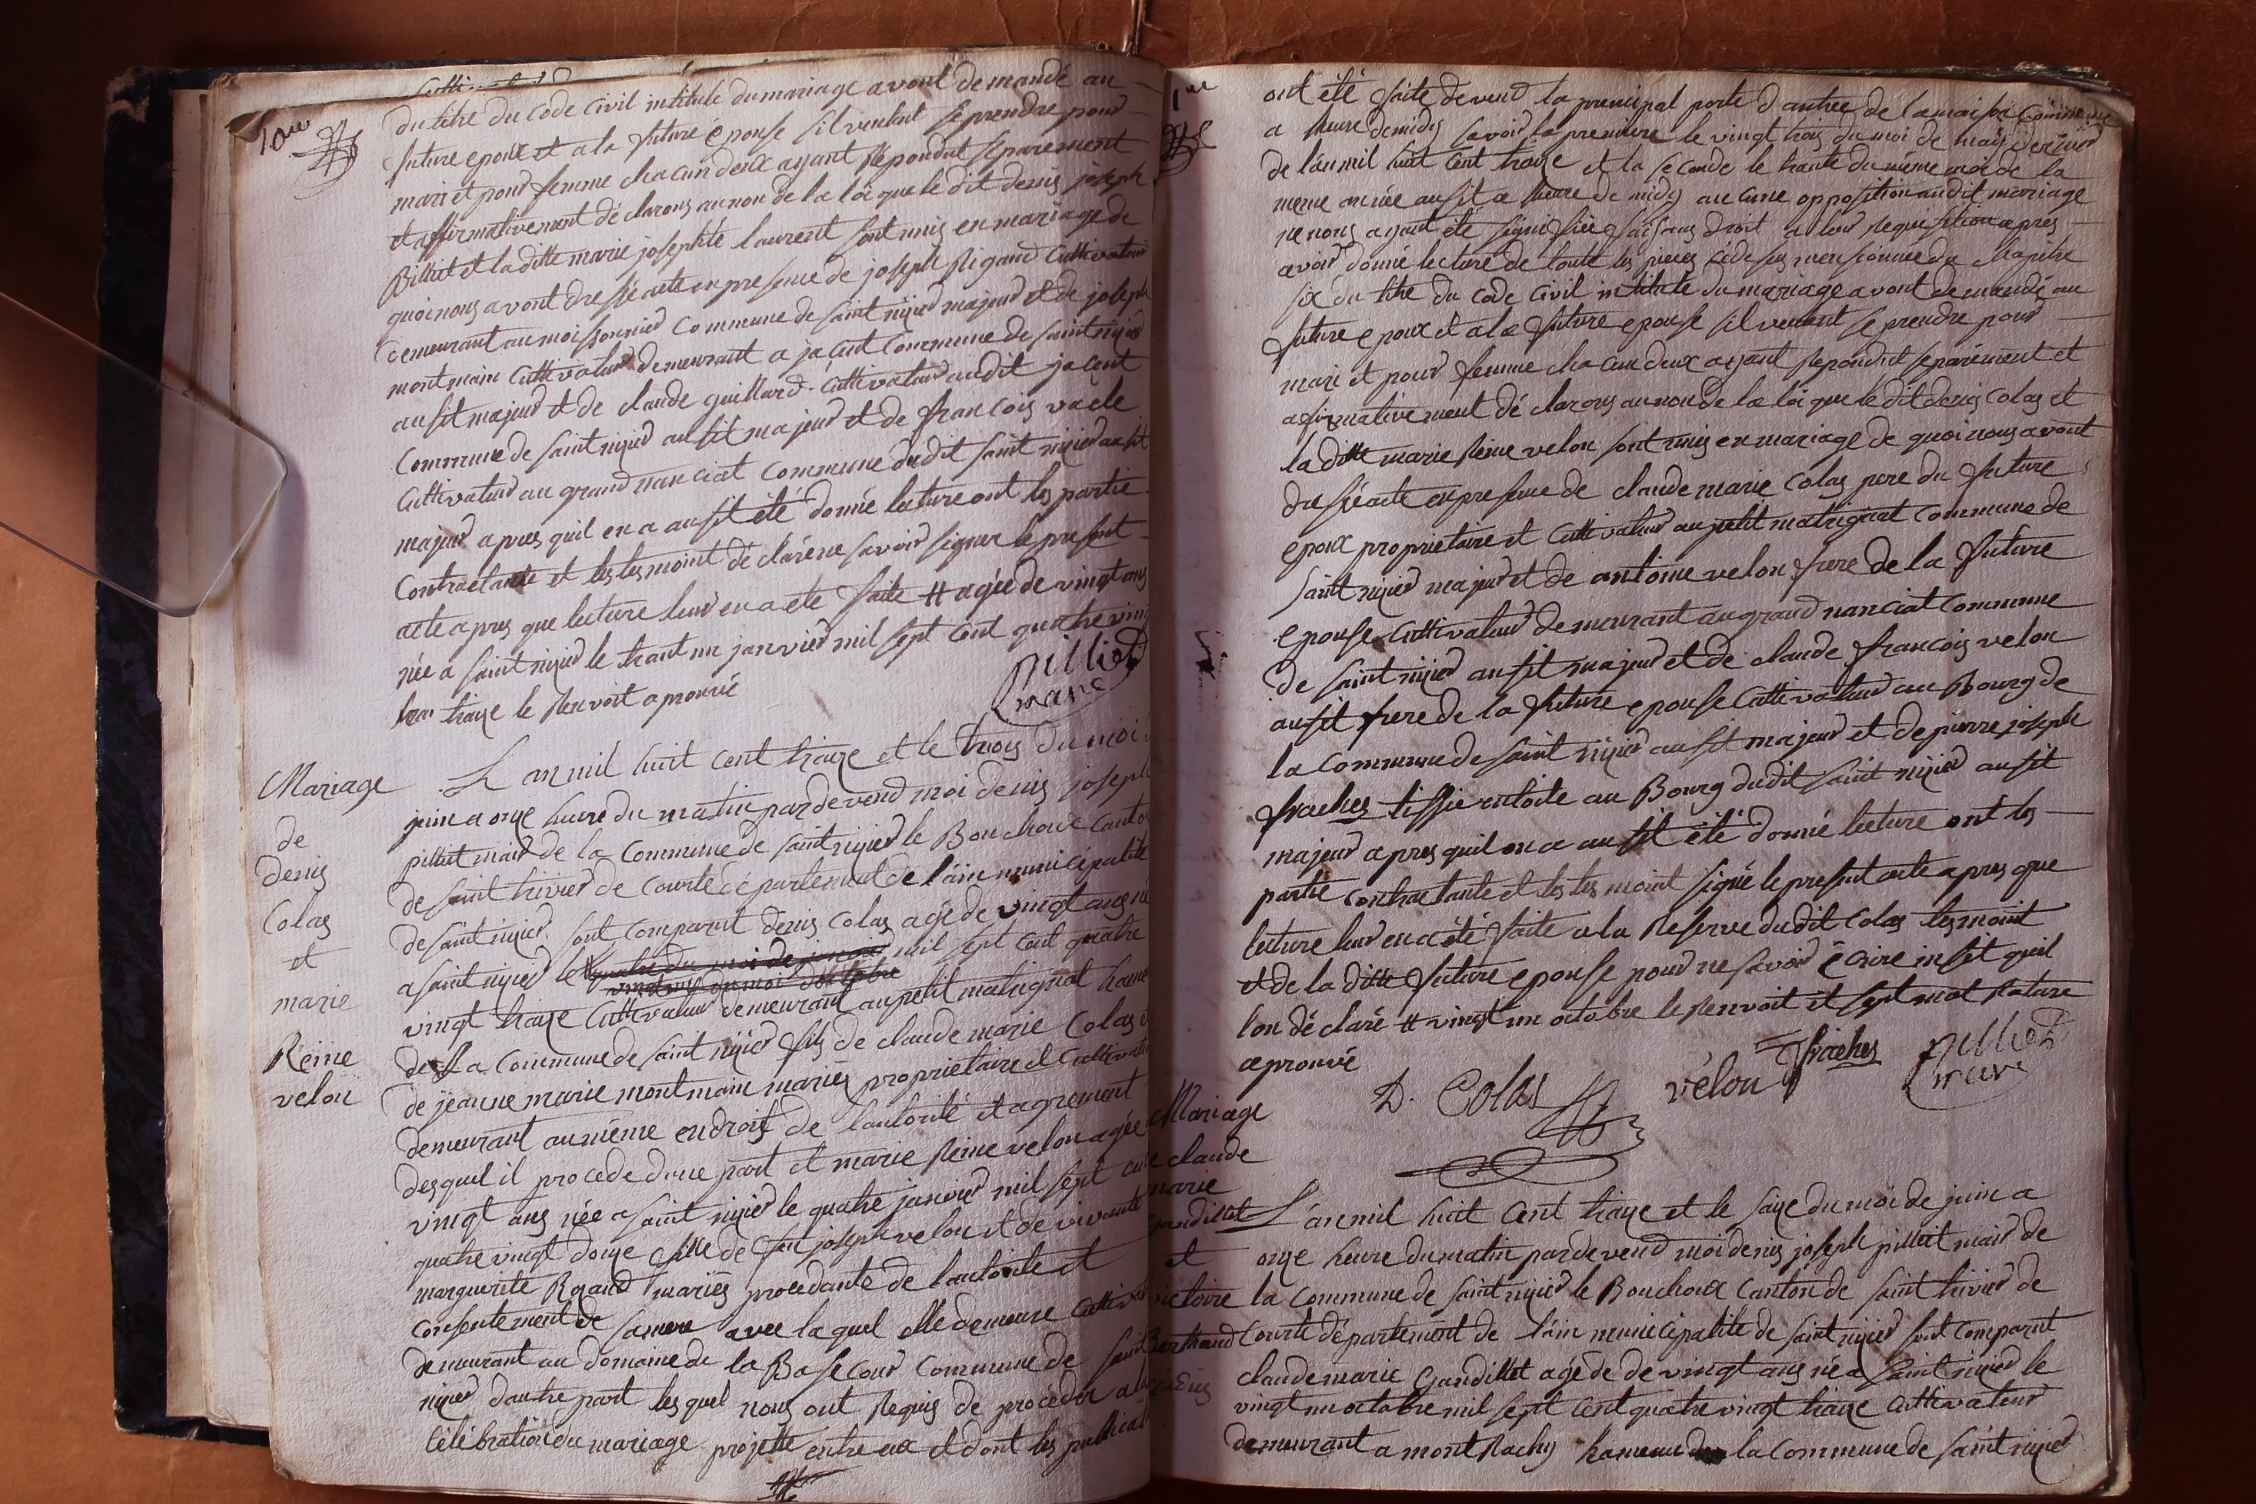 10me
du titre du code civil intitule du mariage avont demandé au
future epoux et a la future épouse sil veulent se prendre pour
mari et pour femme chacun deux ayant repondut séparement
et affirmativement déclarons au non de la loi que le dit denis joseph
Billiet et la ditte marie josephte laurent sont unis en mariage de
quoi nous avont dressé acte en presence de joseph Rigaud Cultivateur
demeurant au moissonnier commune de saint nizier majeur et de joseph
montmain cultivateur demeurant a jacent commune de saint nizier
aussit majeur et de claude guillard cultivateur audit jacent
Commune de saint nizier aussit majeur et de francois vacle
Cultivateur au grand nanciat commune dudit saint nizier aussit
majeur apres quil en a aussit été donné lecture ont les partie
Contractante et les tesmoint déclaré ne savoir signer le present
acte apres que lecture leur en a ete faite # agée de vingt ans
née a saint nizier le trant un janvier mil sept cent quatre vin
traize le Renvoit aprouvé
pilliet
maire
Mariage
de
denis
Colas
et
marie
Reine
velon
L an mil huit cent traize et le trois du moi
juin a onze heure du matin pardevend moi denis joseph
pilliet maire de la Commune de saint nizier le Bouchoux canto
de saint trivier de Courte département de l'ain municipalité
de saint nizier sont comparut denis Colas agé de vingt ans né
a saint nizier le # quatre du moi de mil sept cent quatre
vingt un du moi doctobre
vingt traize Cultivateur demeurant au petit matignat hame
de La Commune de saint nizier fils de claude marie Colas
de jeanne marie montmain mariés proprietaire et cultivate
demeurant au même endroit de lautorité et agrement
desquel il procede dune part et marie Reine velon agée
vingt ans née a saint nizier le quatre janvier mil sept cent
quatre vingt douze fille de feu joseph velon et de vivante
marguerite Roland mariés procedante de lautorite et
consentement de sa mere avec laquel elle demeure cultiv
demeurant au domaine de la Basecour commune de saint
nizier dautre part les quel nous ont Requis de proceder a la
célébration du mariage projetté entre eux et dont les publicat
ont été faite devend la principal porte d antrée de la maison commune
a heure de midy savoir la premiere le vingt trois du moi de mais dernier
de lan mil huit cent traize et la seconde le trante du même moi de la
meme année aussit a heure de midy aucune opposition audit mariage
ne nous ayant été signifiée faisans droit a leur requisition apres
avoir donné lecture de toute les pieces cideset mensionnée du chapitre
six du titre du code civil intitule du mariage avont demandé au
future epoux et a la future epouse sil veulent se prendre pour
mari et pour femme chacun deux ayant repondut separément et
afirmativement déclarons au non de la loi que le dit denis Colas et
la ditte marie Reine velon sont unis en mariage de quoi nous avont
dressé acte en presence de claude marie Colas pere du future
epoux proprietaire et cultivateur au petit matignat commune de
saint nizier majeur et de antoine velon frere de la future
epouse cultivateur demeurant au grand nanciat commune
de saint nizier aussit majeur et de claude francois velon
aussit frere de la future epouse cultivateur au Bourg de
la commune de saint nizier aussit majeur et de pierre joseph
fraches tissie entoile au Bourg dudit saint nizier aussit
majeur apres quil on a aussit été donné lecture ont les
partie contractante et les tesmoint signé le present acte apres que
lecture leur en a été faite a la Reserve dudit Colas tesmoint
et de la ditte future epouse pour ne savoir écrire insit quil
lon déclaré # vingt un octobre le renvoit et sept mot rature
aprouvé
D. Colas
vélon
fraches
pilliet
maire
Mariage
de claude
marie
Gandillet
et
victoire
Berthaud
L'an mil huit cent traize et le saize du moi de juin a
onze heure du matin pardevend moi denis joseph pilliet maire de
la Commune de saint nizier le Bouchoux canton de saint trivier de
Courte département de lain municipalité de saint nizier sont comparut
claude marie Gandillet agé de de vingt ans né a saint nizier le
vingt un octobre mil sept cent quatre vingt traize cultivateur
demeurant a mont Rachy hameau de la commune de saint nizier